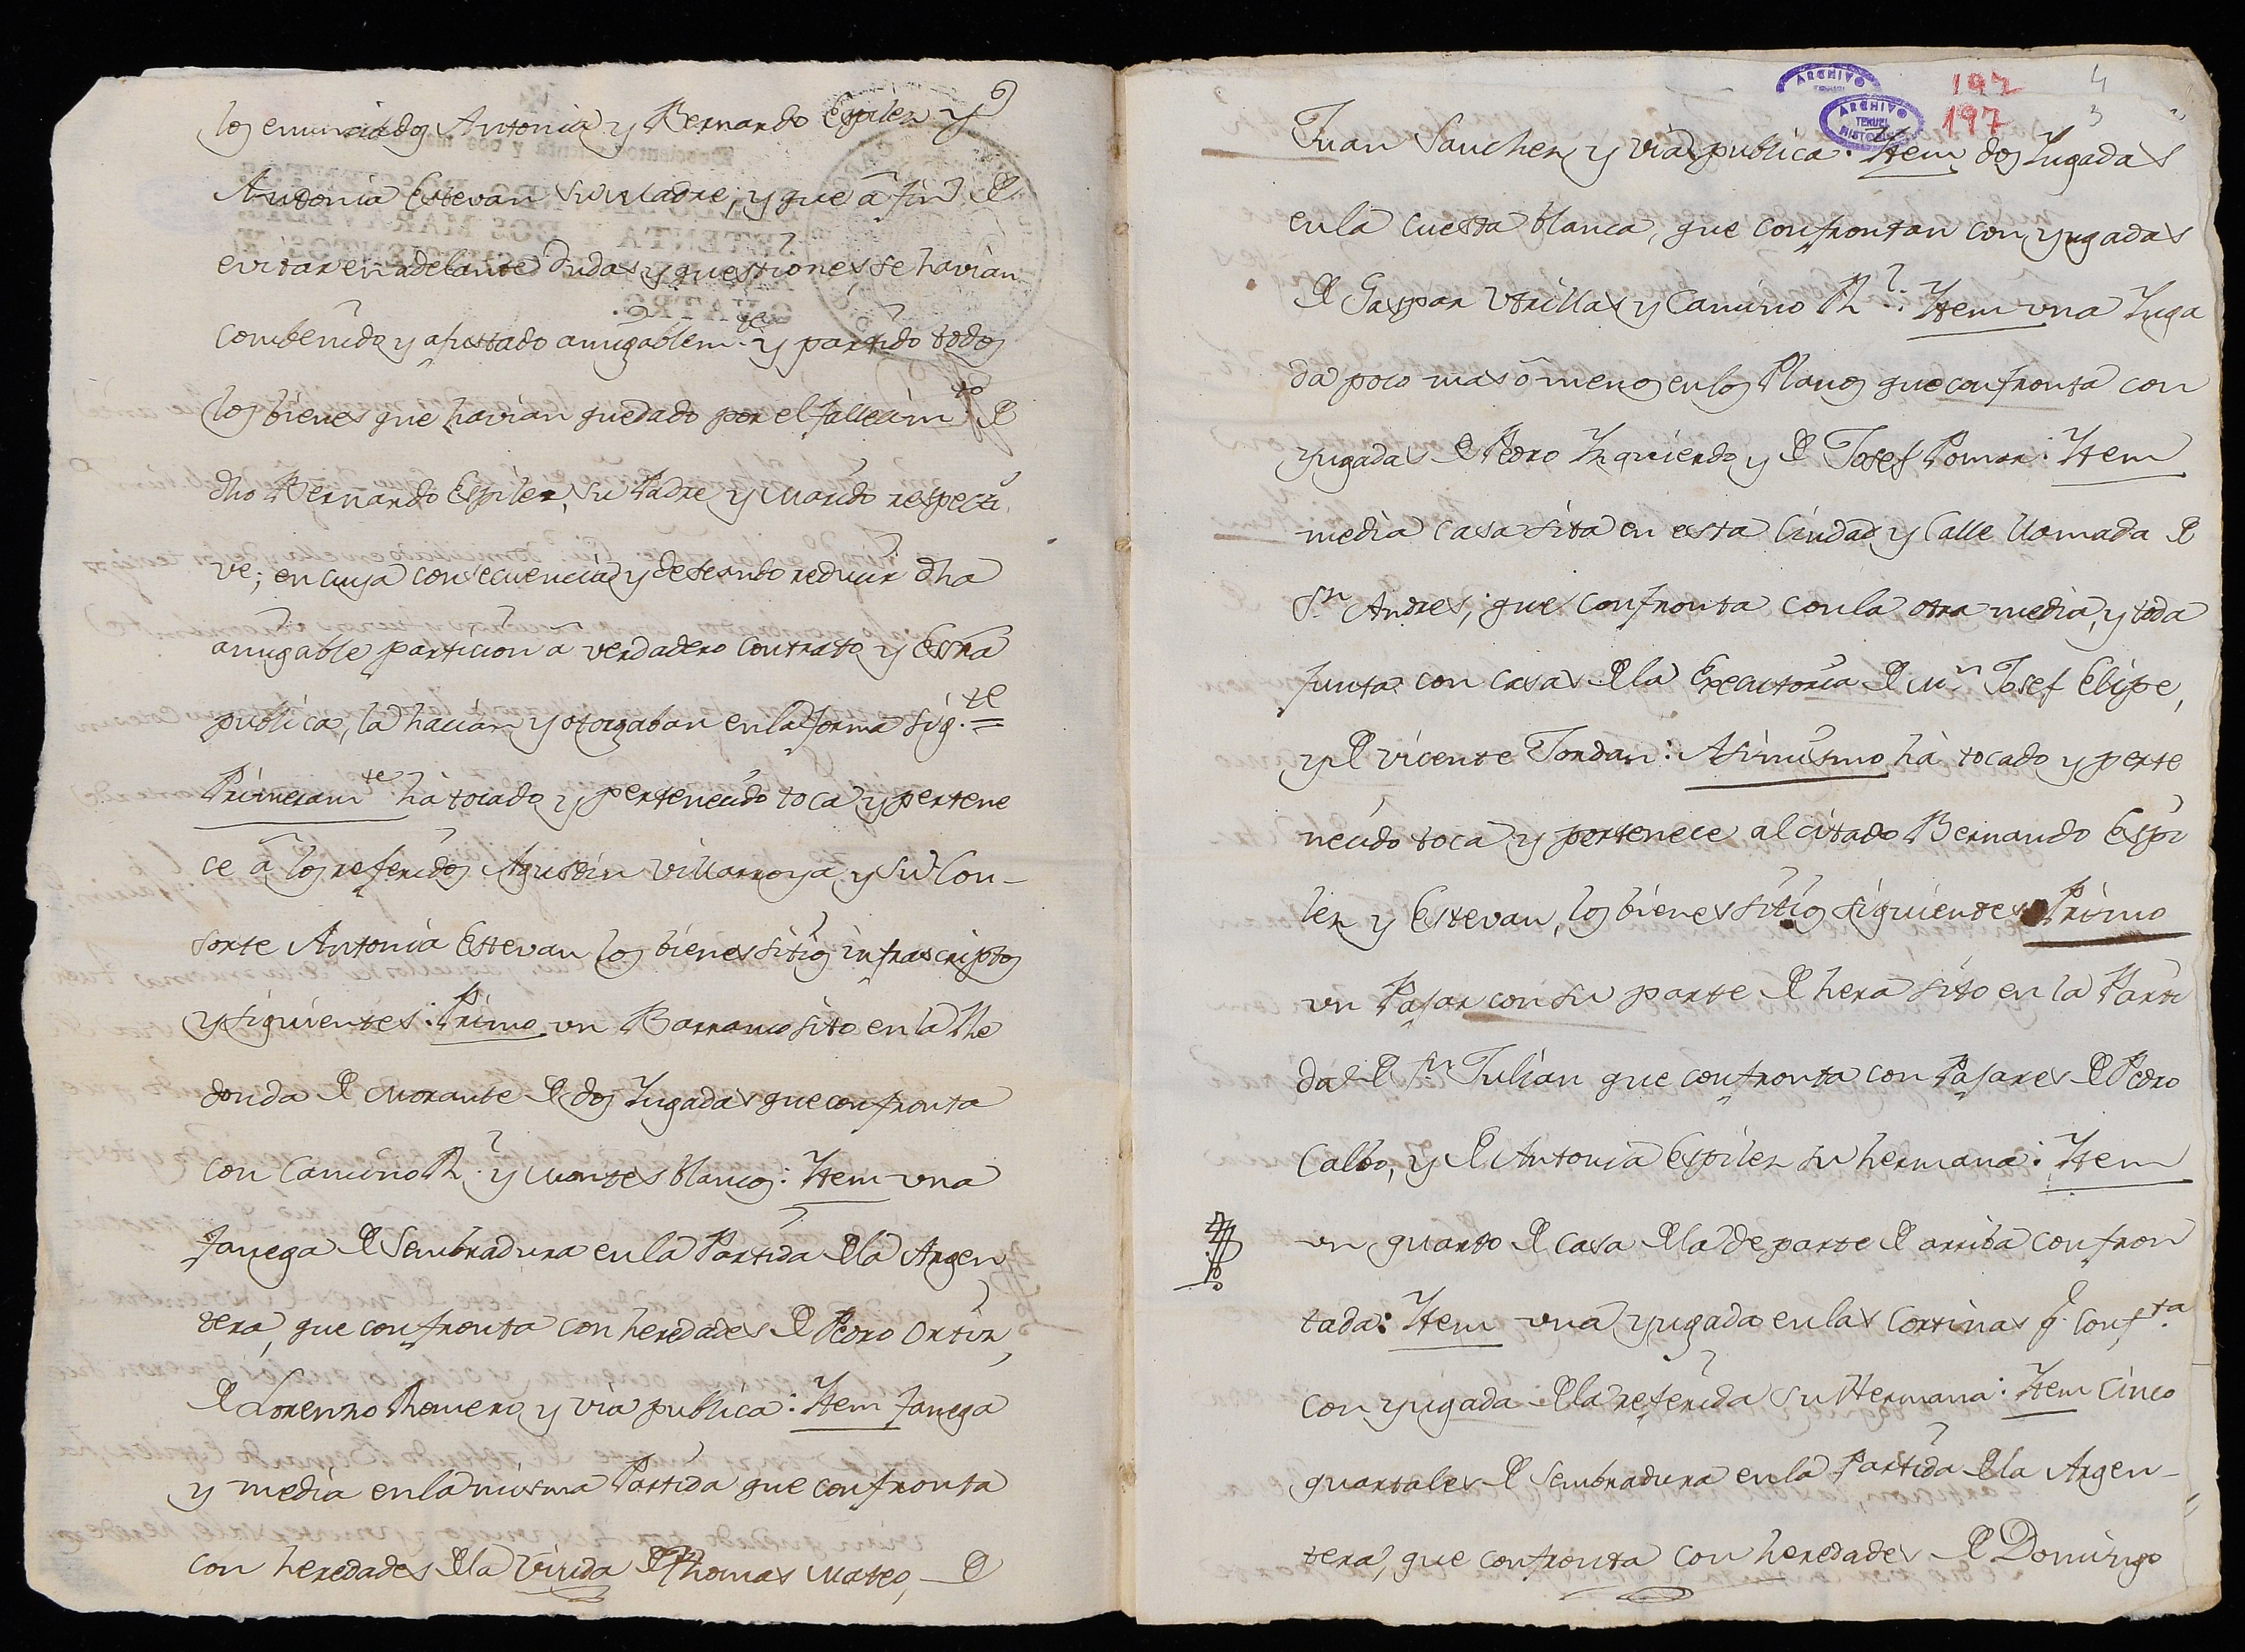 los enunciados Antonia y Bernardo Espilez y
Antonia Estevan su Madre, y que â fin de
evitar en adelante dudas y questiones, se havian
combenido y ajustado amigablem.te y partido todos
los bienes que havian quedado por el fallecim.to de
dho Bernardo Espilez, su Padre y Marido respecti
ve; en cuya consecuencia y deseando reducir dha
amigable particion â verdadero contrato y Essra
publica, la hacian y otorgaban en la forma sig.te =
Primeram.te hà tocado y pertenecido toca y pertene
ce â los referidos Agustin Villarroya y su Con-
sorte Antonia Estevan los bienes sitios infrascriptos
y siguientes: Primo un Barranco sito en la Re
donda de Morante de dos Yugadas que confronta
con Camino R.l y Montes blancos: Item una
fanega de sembradura en la Partida de la Argen
tera, que confronta con heredades de Pedro Ortiz,
de Lorenzo Romero y via publica: Item fanega
y media en la misma Partida que confronta
con heredades de la Viuda de Thomas Mateo, de
ARCHIVO
ARCHIVO
TERUEL
HISTORICO
192
197
4
3
Juan Sanchez y via publica: Item dos Yugadas
en la Cuesta blanca, que confrontan con yugadas
de Gaspar Utrillas y Camino R.l: Item una Yuga
da poco mas ô menos en los Planos que confronta con
yugadas de Pedro Yzquierdo y de Josef Pomar: Item
media casa sita en esta Ciudad y Calle llamada de
S.n Andres, que confronta con la otra media, y toda
junta con casas de la Executoria de M.n Josef Elipe,
y de Vicente Jordan: Asimismo hà tocado y perte
necido toca y pertenece al citado Bernando Espi
lez y Estevan, los bienes sitios siguientes Primo
un Pajar con su parte de hera sito en la Parti
da de S.n Julian que confronta con Pajares de Pedro
Calbo, y de Antonia Espilez su hermana: Item
un quarto de casa de la de parte de arriba confron
tada: Item una yugada en las Cortinas q. conf.ta
con yugada de la referida su Hermana: Item cinco
quartales de sembradura en la Partida de la Argen-
tera, que confronta con heredades de Domingo